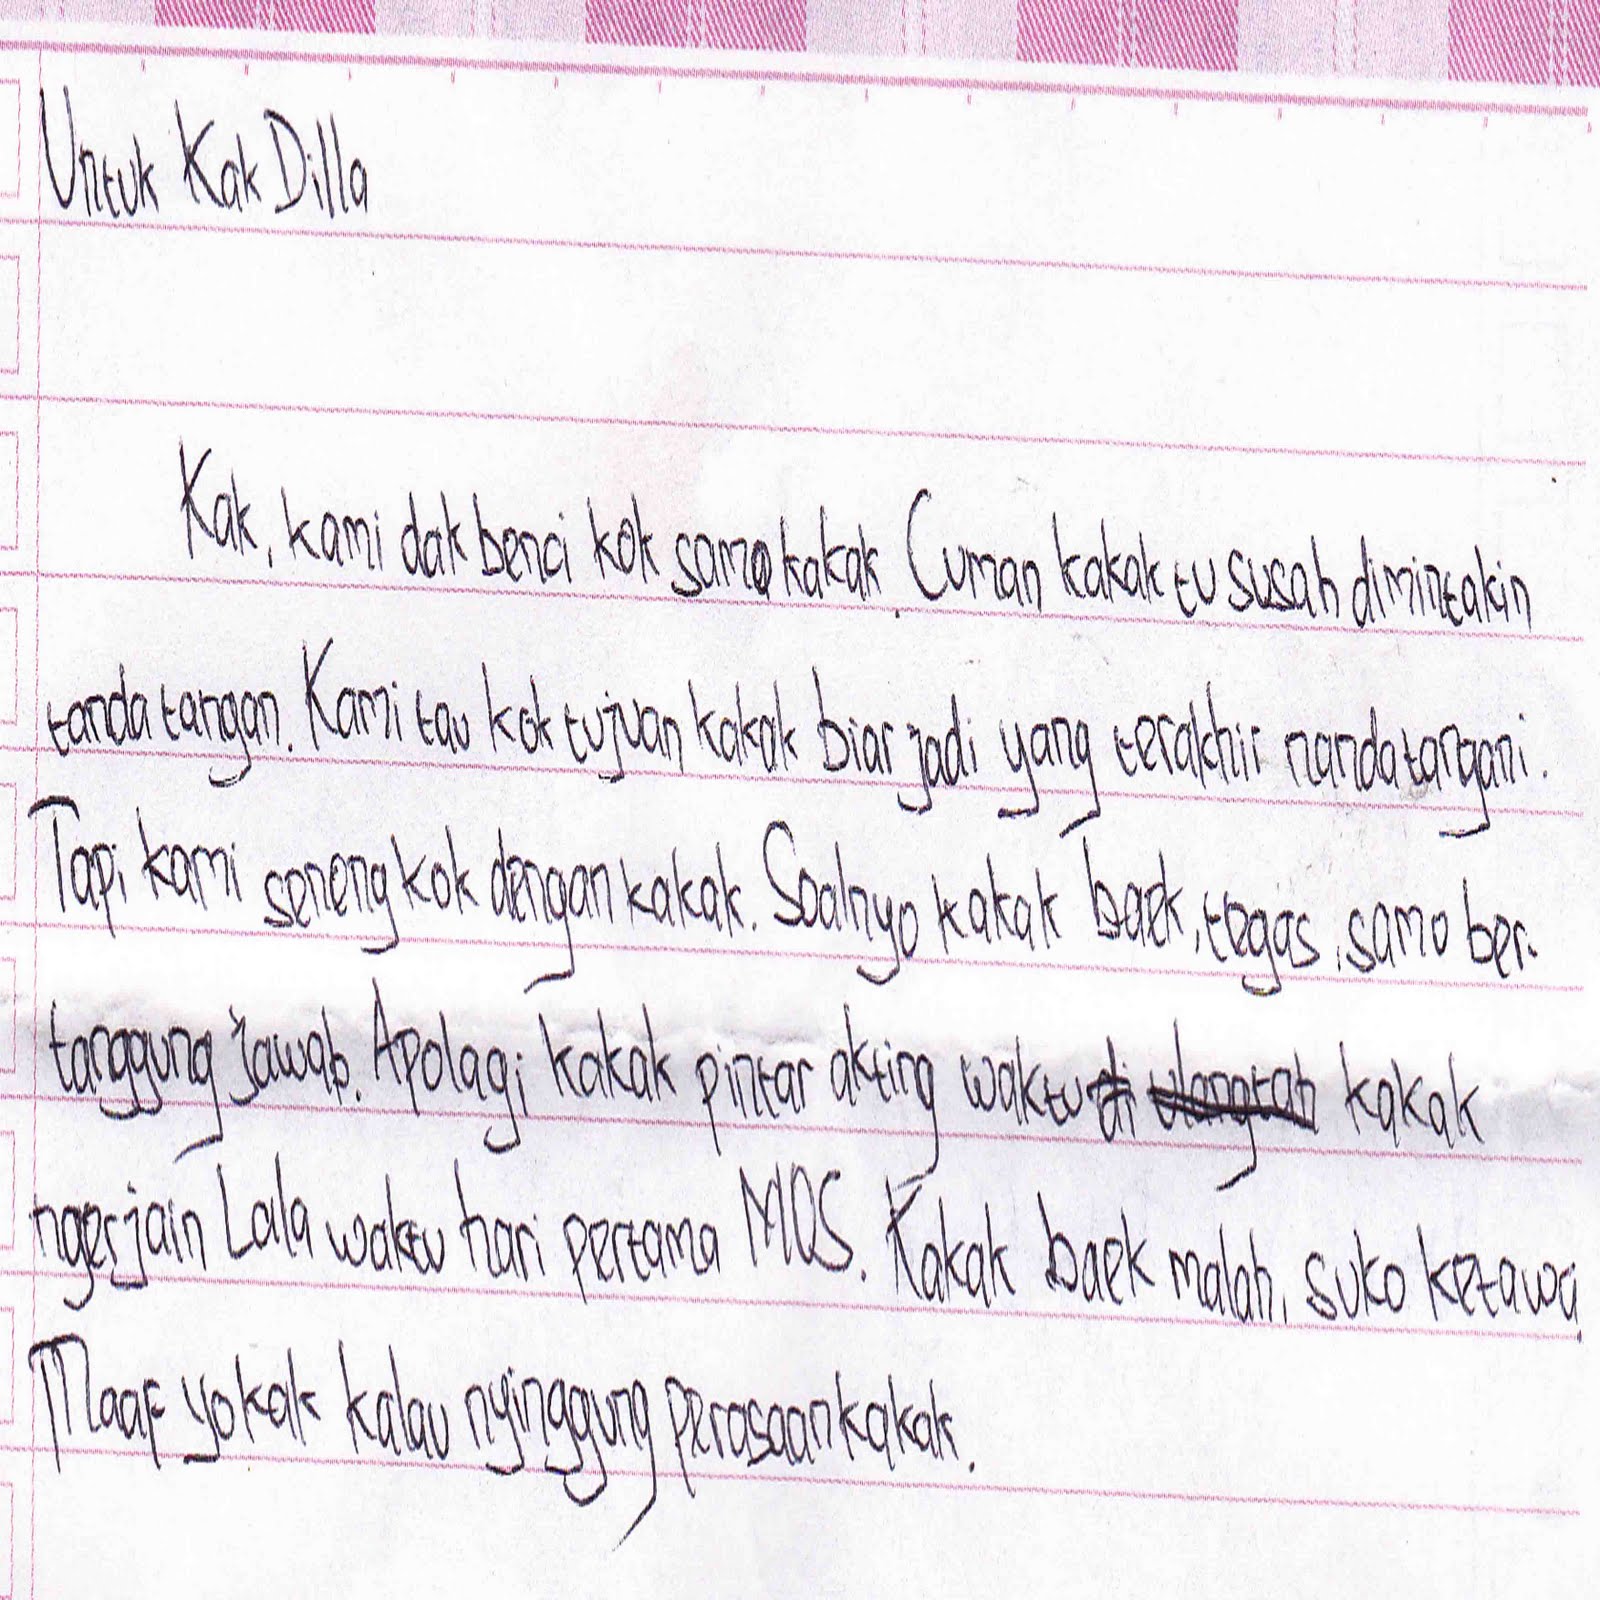 Untuk Kak Dilla
Kak, kami dak benci kok samo kakak. Cuman kakak tu susah dimintakin
tanda tangan. Kami tau kok tujuan kakak biar jadi yang terakhir nandatangani.
Tapi kami seneng kok dengan kakak. Soalnyo kakak baek, tegas, samo ber-
tanggung jawab. Apolagi kakak pintar akting waktu di ulangtah kakak
ngerjain Lala waktu hari pertama MOS. Kakak baek malah, suko ketawa.
Maaf yo kak kalau nyinggung perasaan kakak.